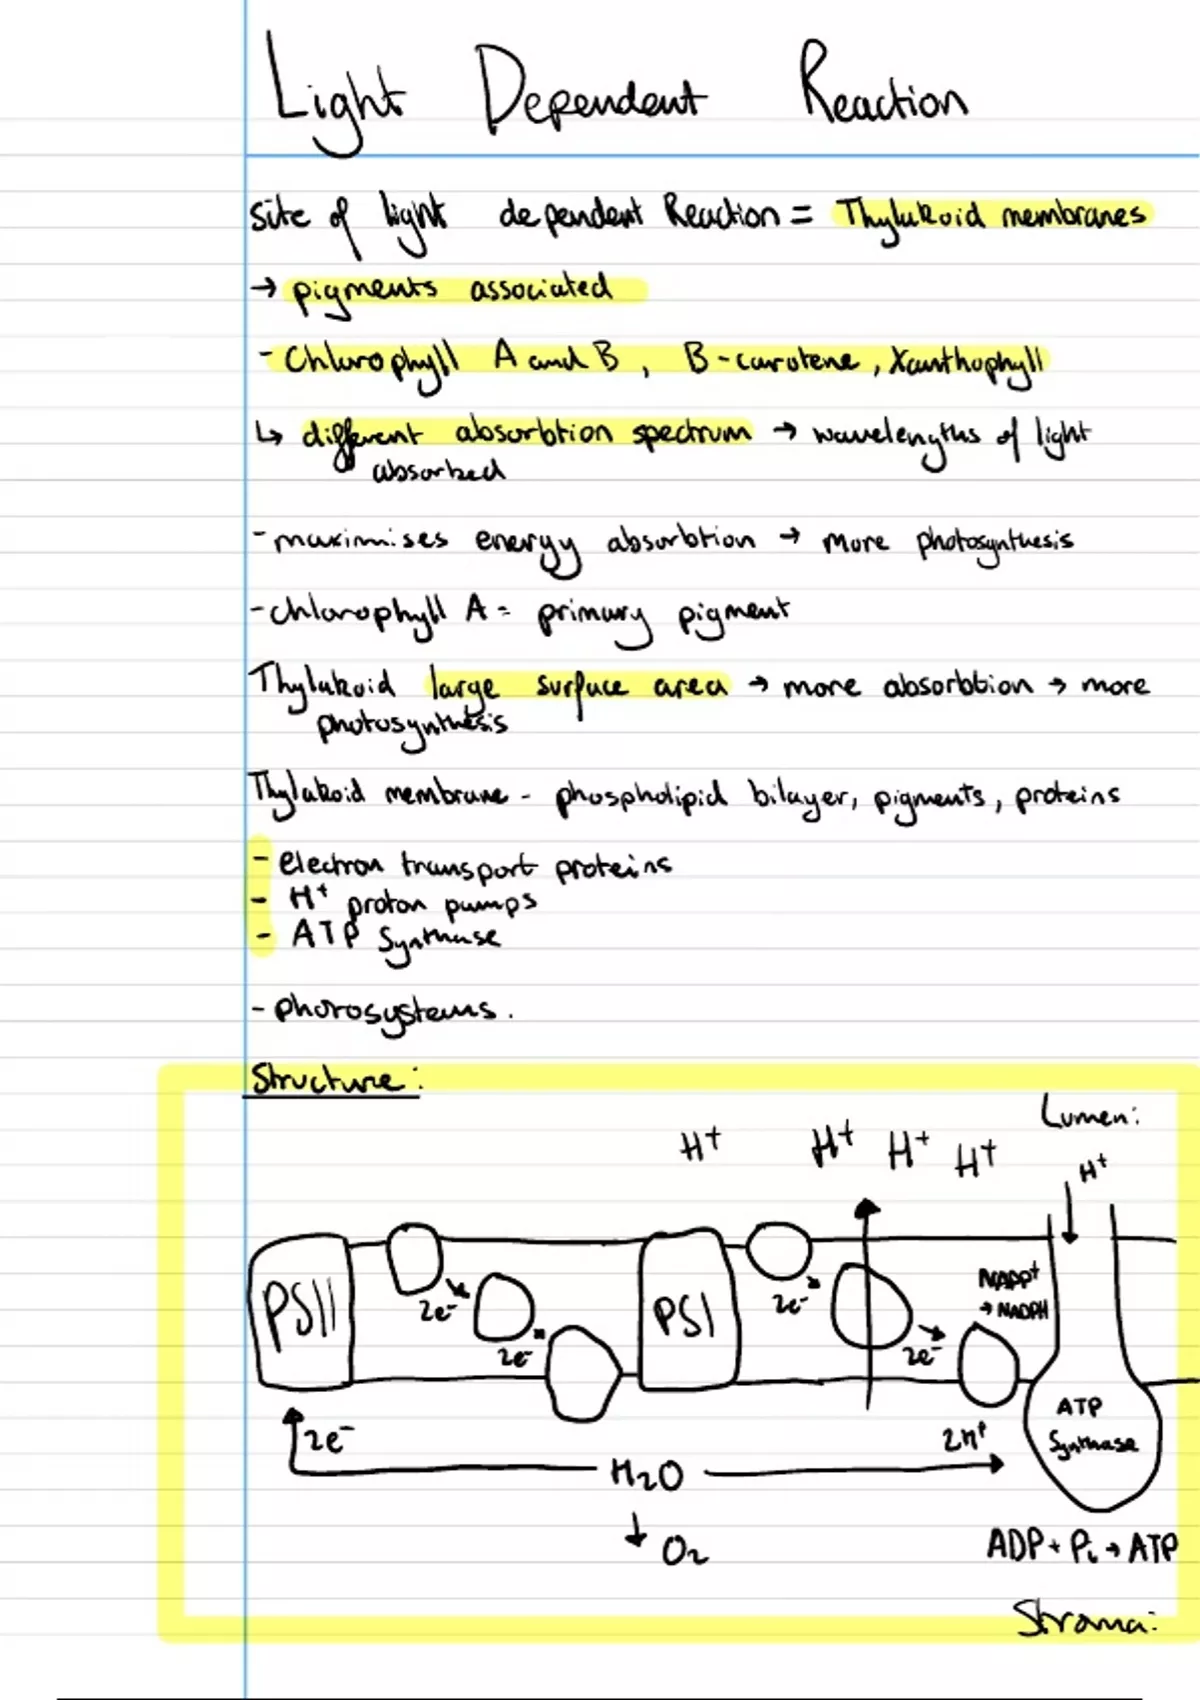 Light Dependent Reaction
Site of light dependent Reaction = Thylakoid membranes
→ pigments associated
- Chlorophyll A and B, B-carotene, Xanthophyll
↳ different absorbtion spectrum → wavelengths of light
absorbed
- maximises energy absorbtion → more photosynthesis
- chlorophyll A = primary pigment
Thylakoid large surface area → more absorbtion → more
photosynthesis
Thylakoid membrane - phospholipid bilayer, pigments, proteins
- electron transport proteins
- H+ proton pumps
- ATP Synthase
- photosystems.
Structure:
Lumen:
H+ H+ H+ H+ H+
PSII 2e- 2e- PSI 2e- 2e-
NADP+
→ NADPH
ATP
Synthase
2e- 2H+
H2O
↓ O2
ADP + Pi → ATP
Stroma: